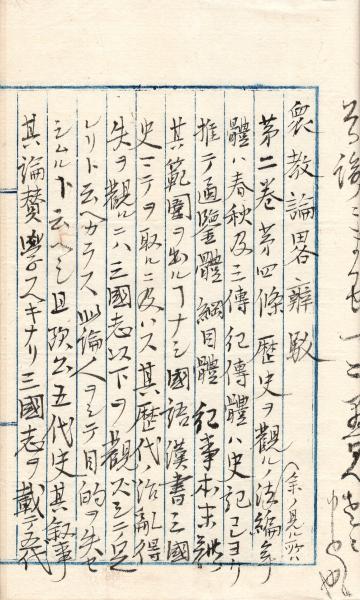 衆教論畧辯駁
第二卷第四條歷史ヲ觀ル法編年
體ハ春秋及三傳紀傳體ハ史記コレヨリ
推テ通鑒體綱目體紀事本末諸
其範圍ヲ出ルヿナシ國語漢書三國
史マテヲ取ルニ及ハス其歷代ノ治亂得
失ヲ觀ルニハ三國志以下ヲ觀スシテ足
レリト云ヘカラス此論人ヲシテ目的ヲ失セ
シムル下云ヘシ且歐公五代史其叙事
其論賛學スヘキナリ三國志ヲ載テ五代